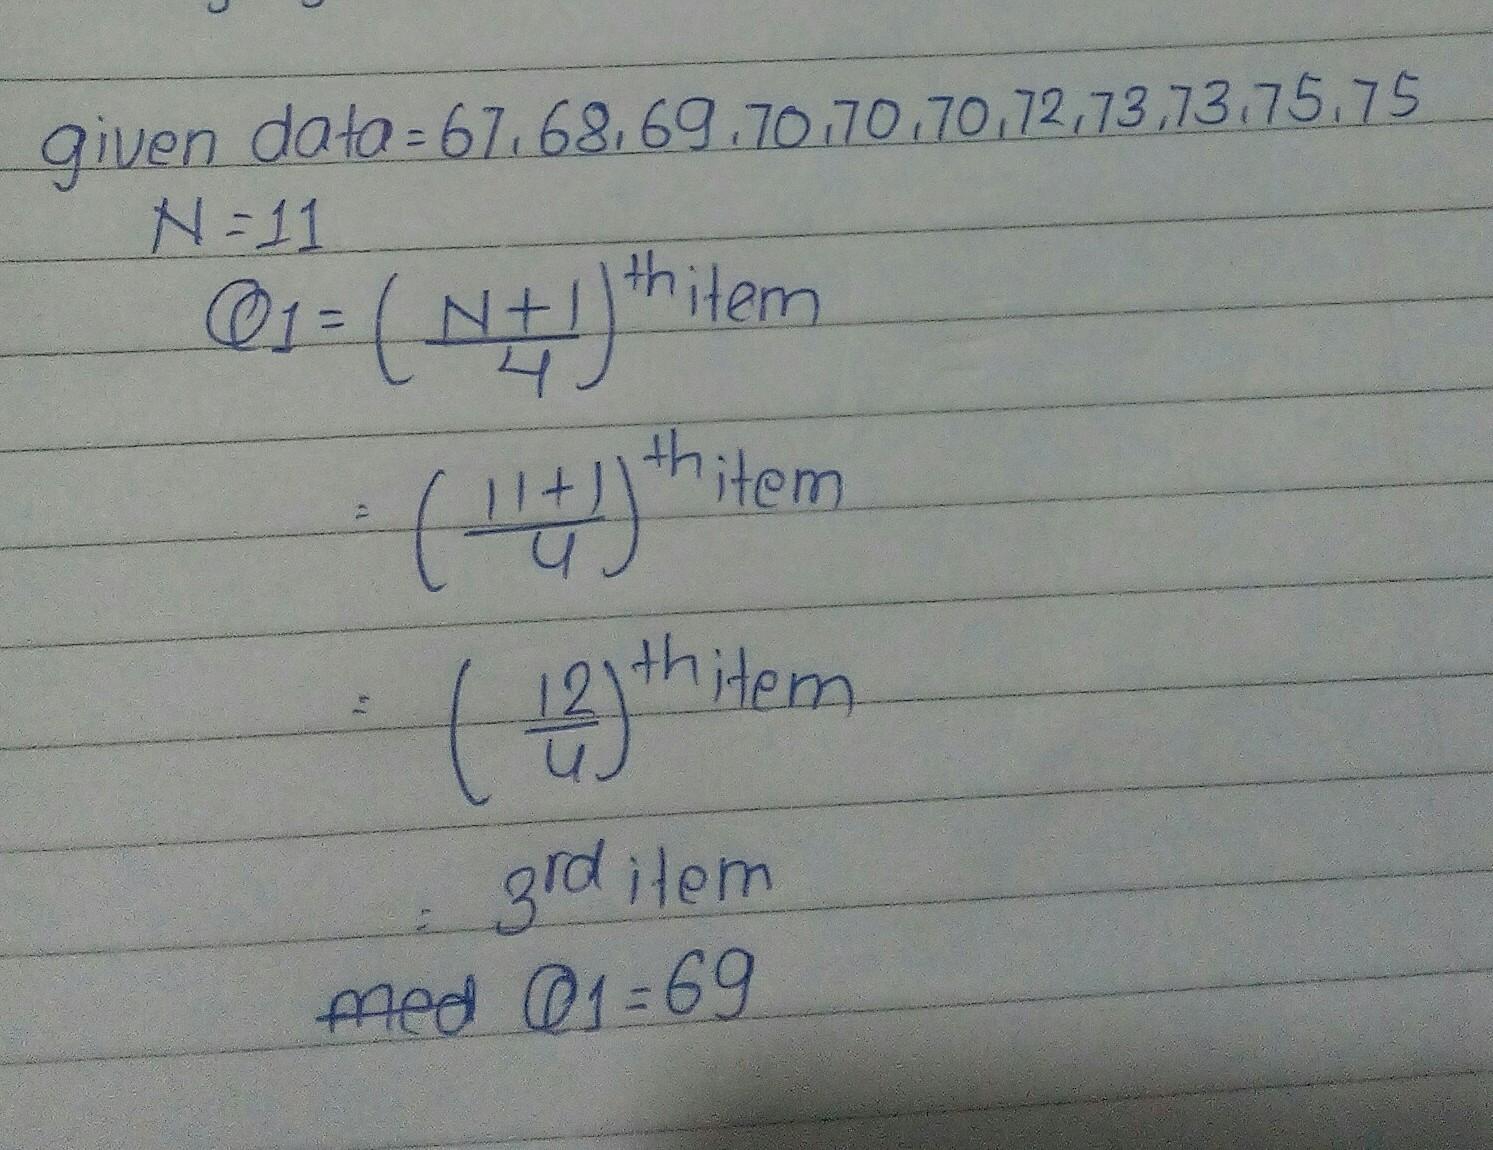 given data = 67, 68, 69, 70, 70, 70, 72, 73, 73, 75, 75
N = 11
Q1 = (N+1/4)th item
= (11+1/4)th item
= (12/4)th item
= 3rd item
med Q1 = 69